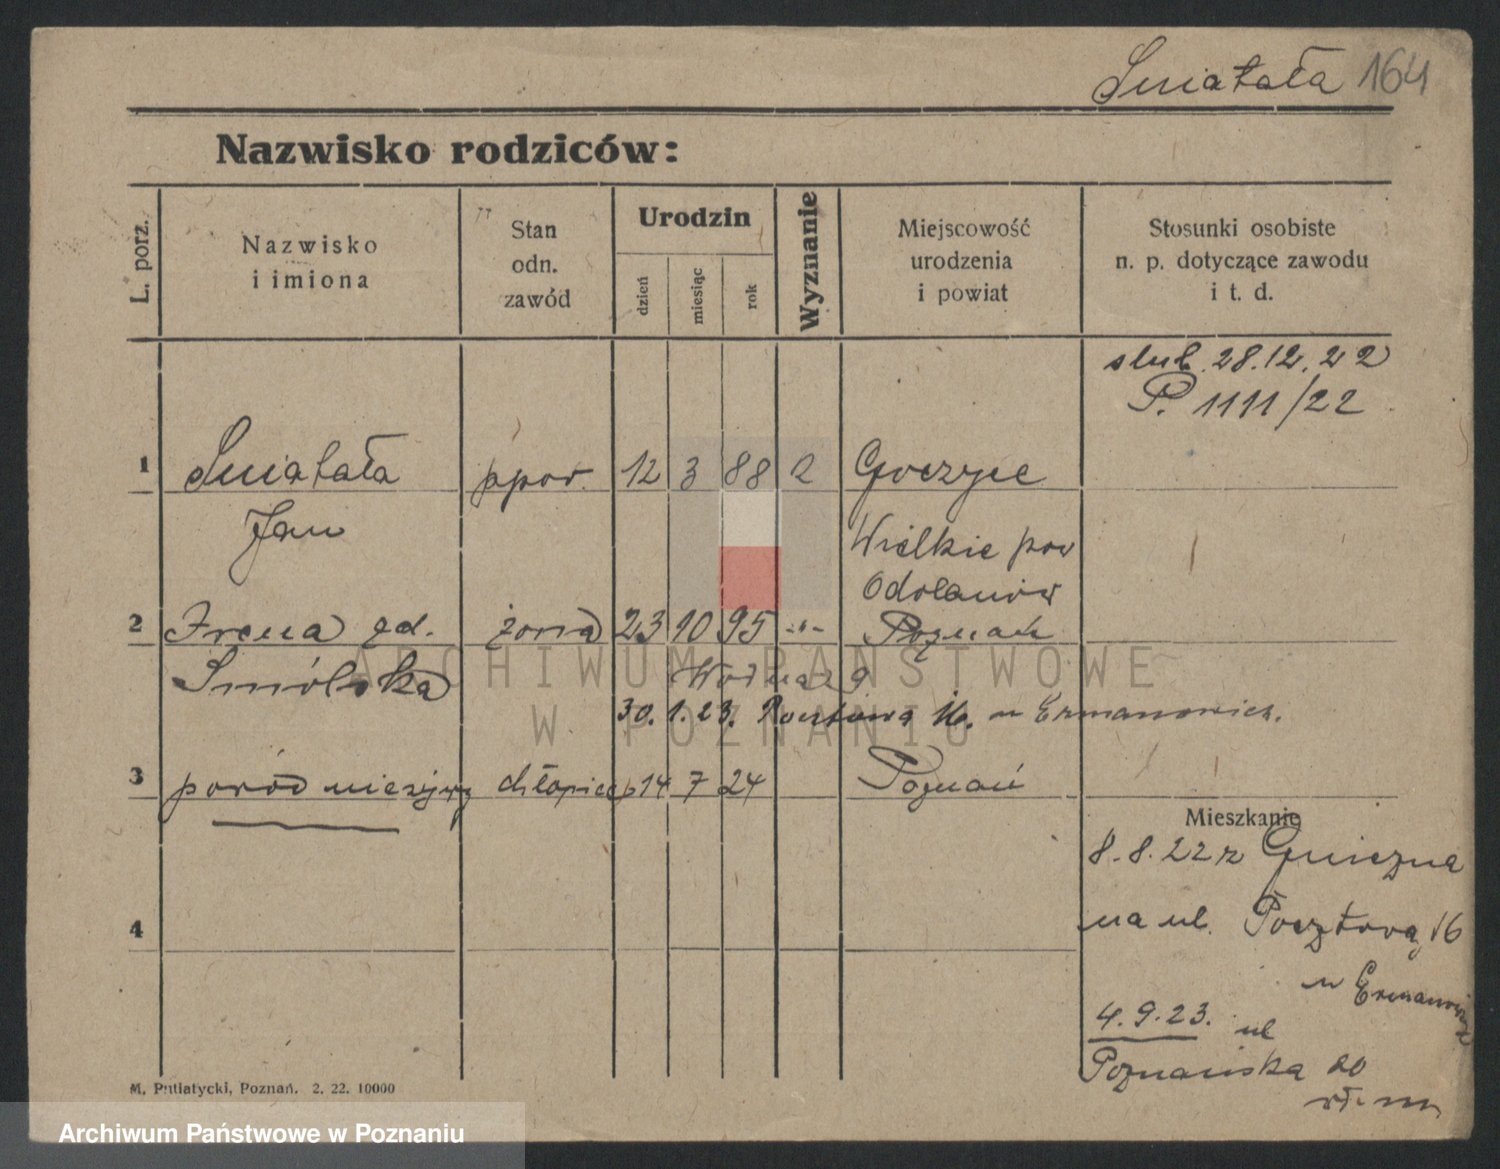 Śniatała 164
Nazwisko rodziców:
L. porz.
Nazwisko
i imiona
Stan
odn.
zawód
Urodzin
dzień
miesiąc
rok
Wyznanie
Miejscowość
urodzenia
i powiat
Stosunki osobiste
n. p. dotyczące zawodu
i t. d.
slub. 28.12.22
P. 1111/22
1 Śniatała ppor. 12 3 88 Gorzyce
Jan Wielkie pow
Odolanów
2 Irena żona 23 10 95 -"- Poznań
Smólska Wodna 9
30.1.23. Pocztowa 16. u Ermanowicz.
3 poród nieżywy chłopiec 14 7 24 Poznań
Mieszkanie
8.8.22 z Gniezna
na ul. Pocztową 16
u Ermanowicz
4
4.9.23. ul
Poznańska
M. Putiatycki, Poznań. 2. 22. 10000
ARCHIWUM PAŃSTWOWE
W POZNANIU
Archiwum Państwowe w Poznaniu